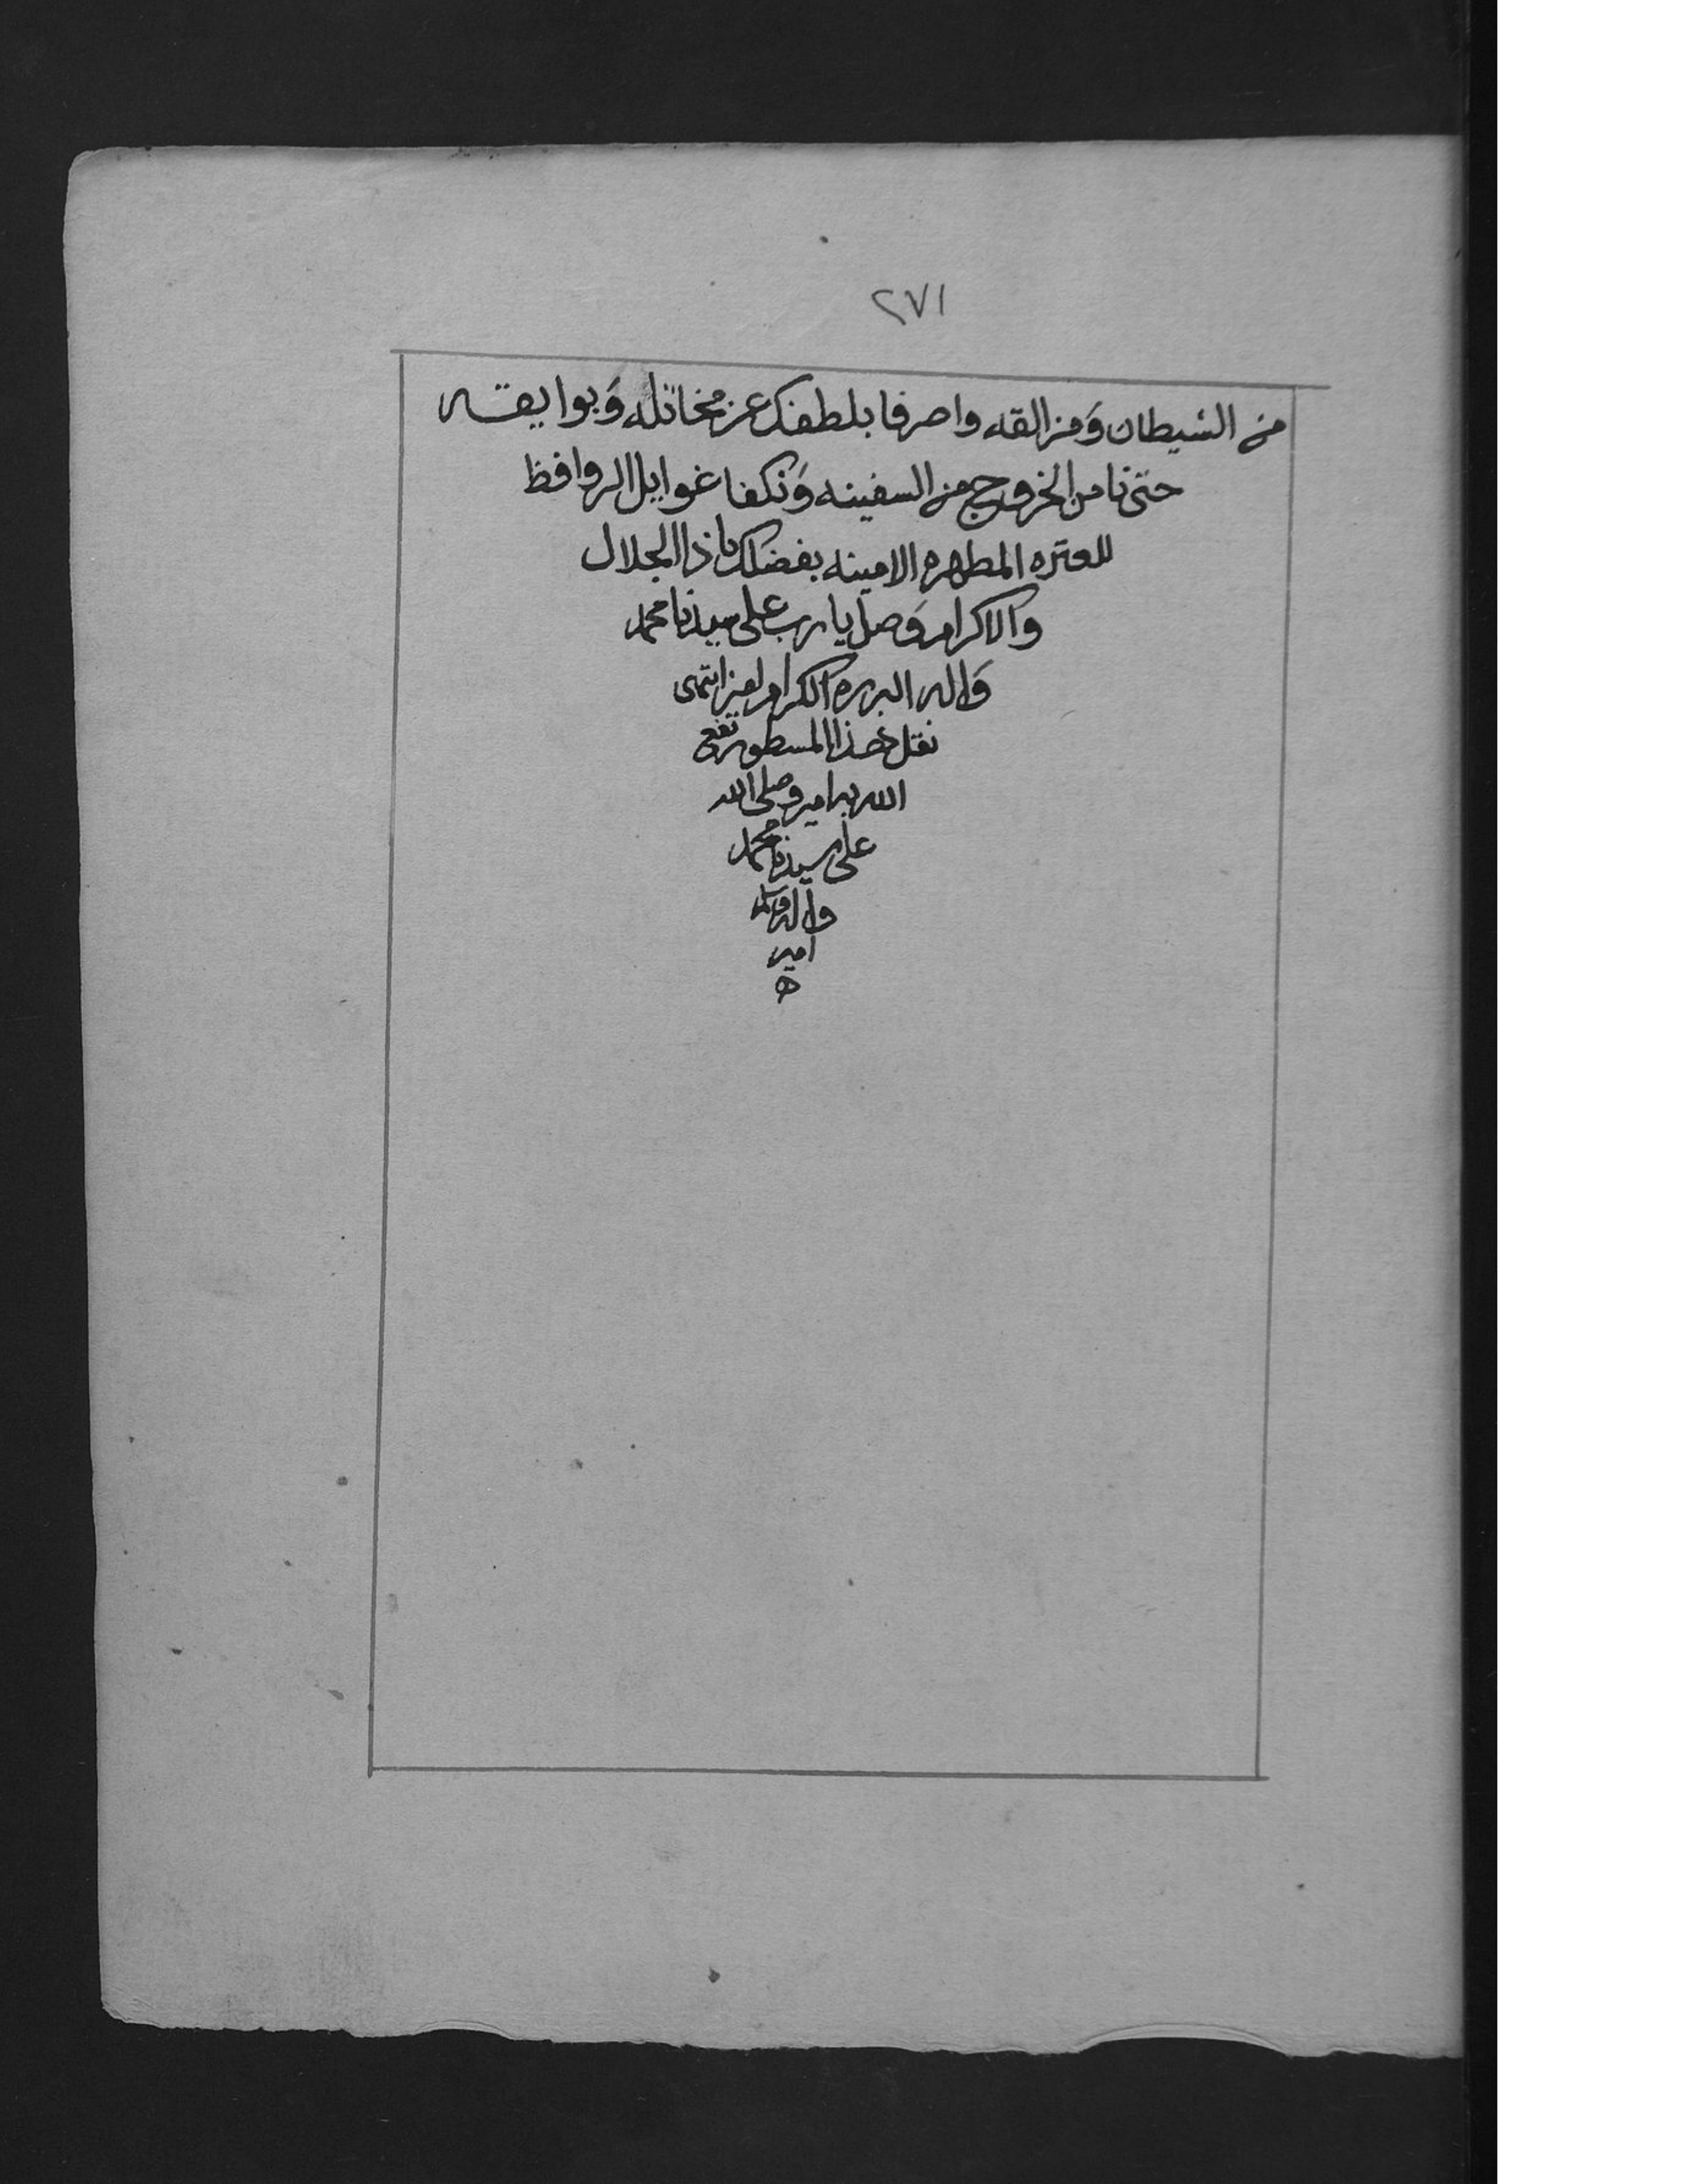 ٢٧١
من الشيطان وَمزالقه واصرفا بلطفك عن مخاتله وَبوايقه
حتى نامن الخروج من السفينه وَنكفا غوايل الروافظ
للعتره المطهره الامينه بفضلك ياذا الجلال
والاكرام وَصل يا رب على سيدنا محمد
وَاله البرره الكرام انتهى
نقل هذا المسطور نفع
الله به امين وصلى الله
على سيدنا محمد
واله وسلم
امين
ه